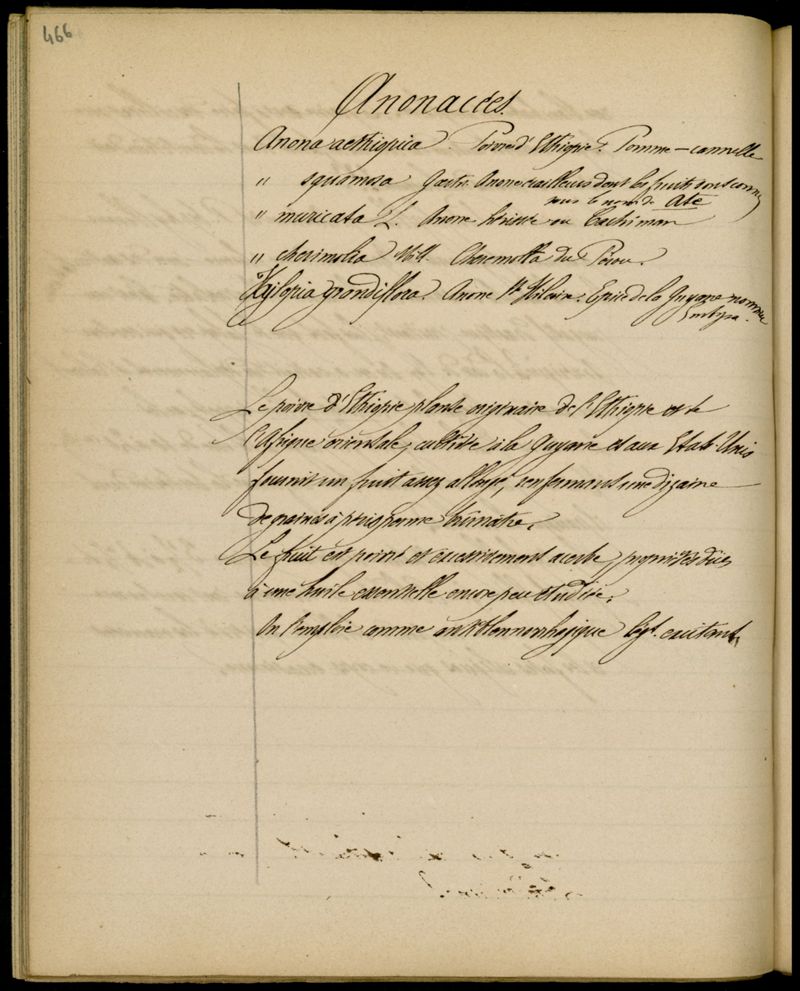 466
Anonacées.
Anona aethiopica. Poivre d'Ethiopie. Pomme-cannelle
" squamosa Anone écailleuse dont les fruits sont connus
sous le nom de Ate
" muricata L. Anone hérissée ou Cachiman
" cherimolia Mill. Cheremolla du Pérou.
Xylopia grandiflora. Anone St Hilaire. Epice de la Guyane nommée
Le poivre d'Ethiopie plante originaire de l'Ethiopie et de
l'Afrique orientale, cultivée à la Guyane et aux Etats-Unis
fournit un fruit assez allongé, renfermant une dizaine
de graines à périsperme
Le fruit est poivré et excessivement acerbe, propriétés dues
à une huile essentielle encore peu étudiée.
On l'emploie comme antiblennorrhagique légt. excitant,